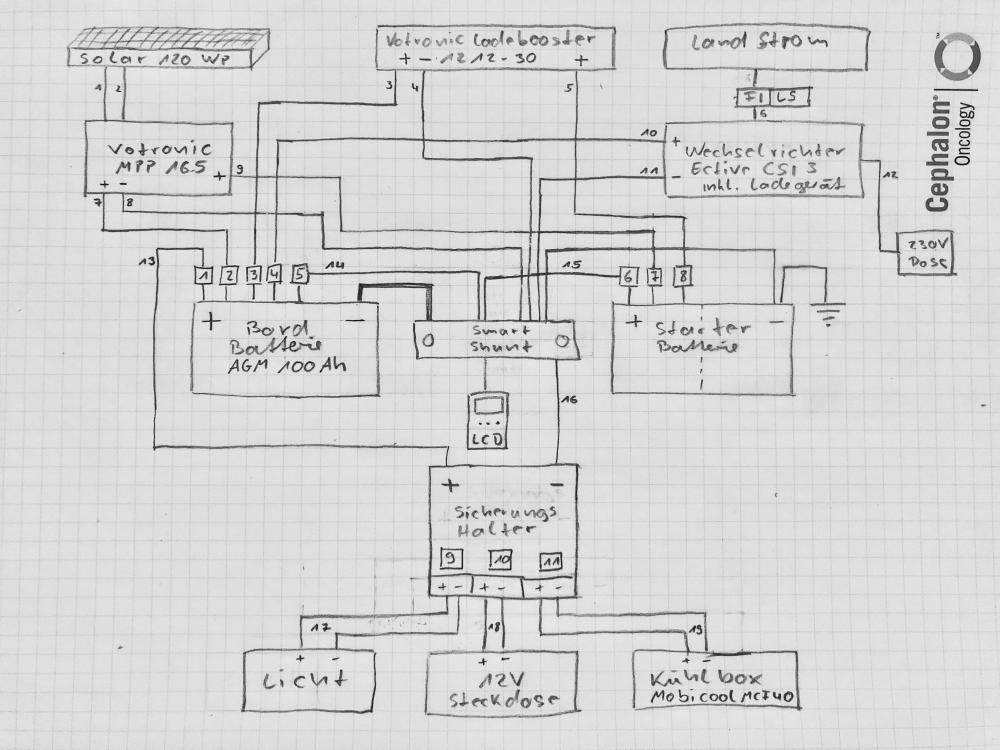 Solar 120 WP
Votronic Ladebooster
+ - 12 12 - 30 +
Land Strom
Cephalon
Oncology
1 2
3 4 5
FI LS
6
Votronic
MPP 165
+ - +
9
7 8
10
+ Wechselrichter
Ective CSI 3
11
- inkl. Ladegerät
12
230V
Dose
13
14
15
1 2 3 4 5
6 7 8
+ -
Bord
Batterie
AGM 100 Ah
Smart
Shunt
+ -
Starter
Batterie
LCD
16
+ -
Sicherungs
Halter
9 10 11
+ - + - + -
17 18 19
+ -
Licht
+ -
12V
Steckdose
+ -
Kühlbox
Mobicool MCF40